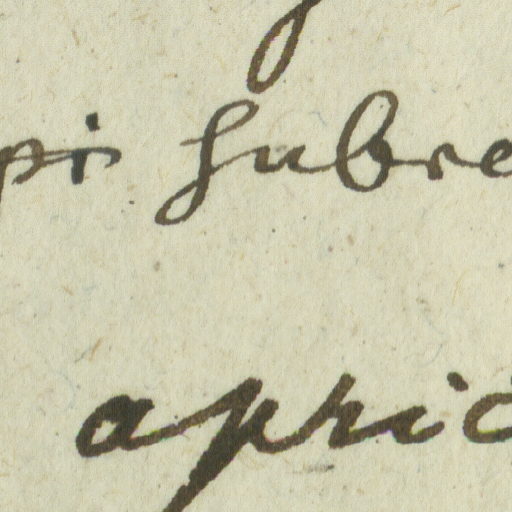 pi subre
apric